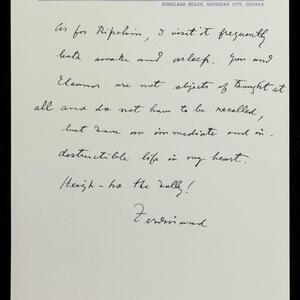 DUNELAND BEACH, MICHIGAN CITY, INDIANA
As for Ripshin, I visit it frequently
both awake and asleep. You and
Eleanor are not objects of thought at
all and do not have to be recalled,
but have an immediate and in-
destructible life in my heart.
Heigh-ho the holly!
Ferdinand